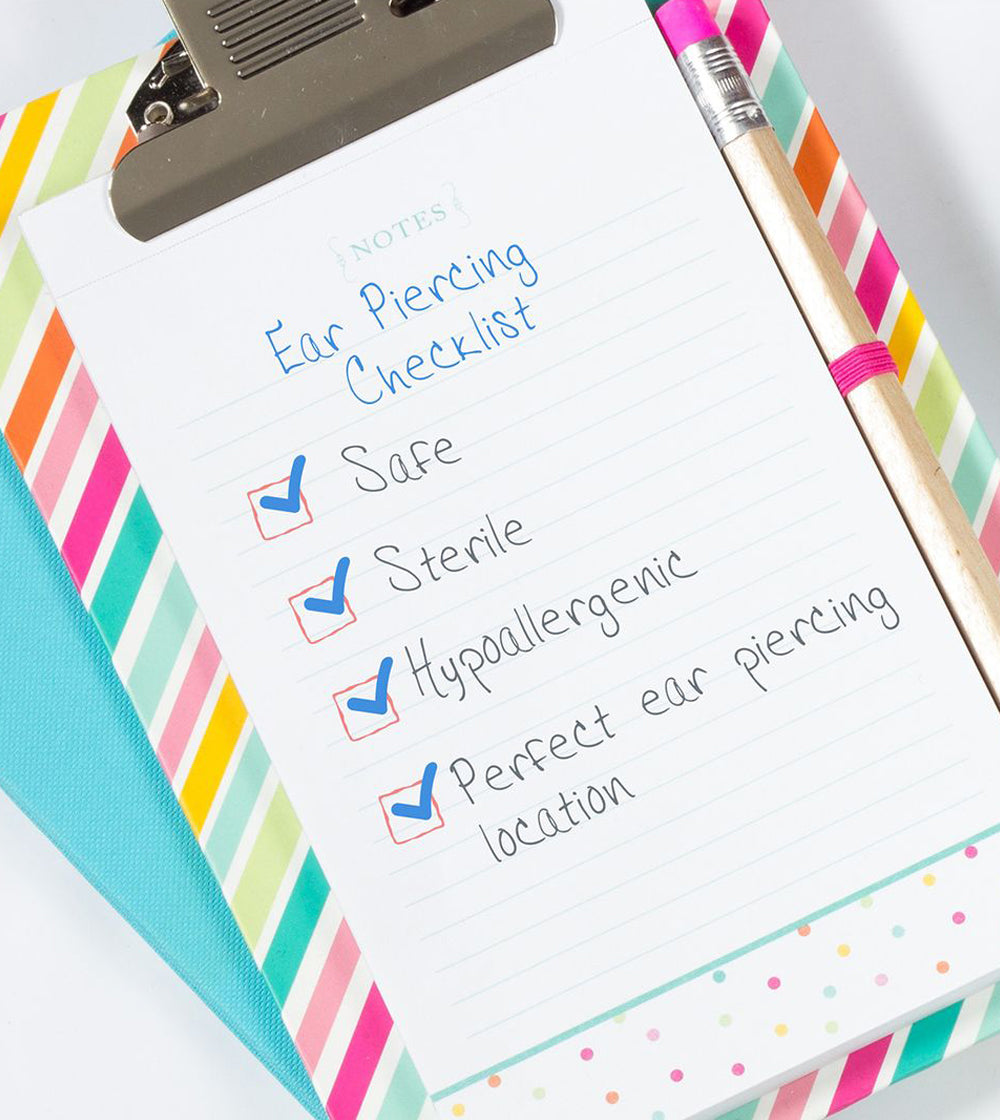 {NOTES}
Ear Piercing
Checklist
Safe
Sterile
Hypoallergenic
Perfect ear piercing
location